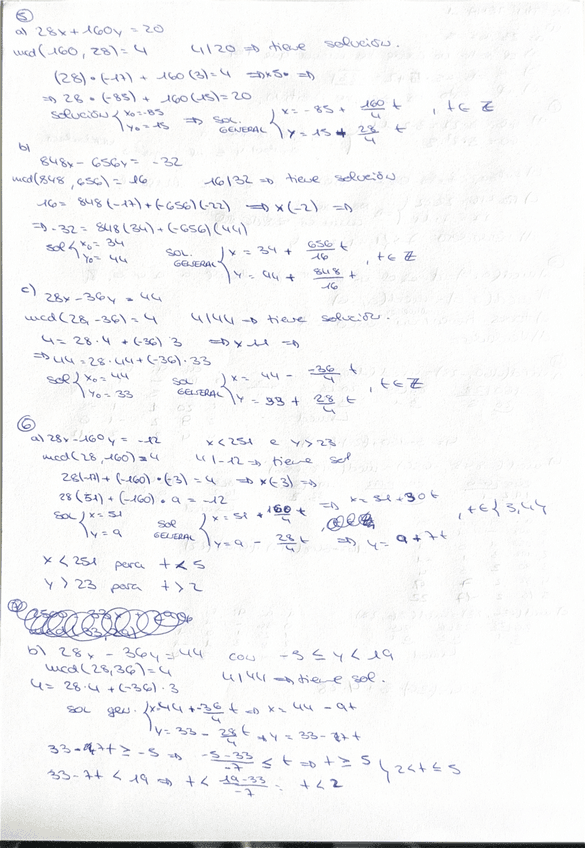 5
a) 28x + 160y = 20
mcd(160, 28) = 4 4/20 => tiene solución.
(28)·(-17) + 160(3) = 4 => x5 =>
=> 28·(-85) + 160(15) = 20
solución { x₀ = -85 y₀ = 15 => SOL. GENERAL { x = -85 + 160/4 t , t ∈ Z
y = 15 + 28/4 t
b)
848x - 656y = -32
mcd(848, 656) = 16 16/32 => tiene solución
16 = 848(-17) + (-656)(-22) => x(-2) =>
=> -32 = 848(34) + (-656)(44)
sol { x₀ = 34 y₀ = 44 SOL. GENERAL { x = 34 + 656/16 t , t ∈ Z
y = 44 + 848/16 t
c)
28x - 36y = 44
mcd(28, -36) = 4 4/44 => tiene solución.
4 = 28·4 + (-36)·3 => x 11 =>
=> 44 = 28·44 + (-36)·33
sol { x₀ = 44 y₀ = 33 SOL GENERAL { x = 44 - -36/4 t , t ∈ Z
y = 33 + 28/4 t
6
a) 28x - 160y = -12 x < 251 e y > 23
mcd(28, 160) = 4 4/-12 => tiene sol
28(-17) + (-160)·(-3) = 4 => x(-3) =>
28(51) + (-160)·9 = -12
sol { x = 51 y = 9 SOL GENERAL { x = 51 + 160/4 t => x = 51 + 30t , t ∈ { 3, 4 }
y = 9 - 28/4 t => y = 9 + 7t
x < 251 para t < 5
y > 23 para t > 2
b) 28x - 36y = 44 con -5 ≤ y < 19
mcd(28, 36) = 4 4/44 => tiene sol.
4 = 28·4 + (-36)·3
sol gen. { x = 44 + -36/4 t => x = 44 - 9t
y = 33 - 28/4 t => y = 33 - 7t
33 - 7t ≥ -5 => -5-33/-7 ≤ t => t ≥ 5 } 2 < t ≤ 5
33 - 7t < 19 => t < 19-33/-7 = t < 2